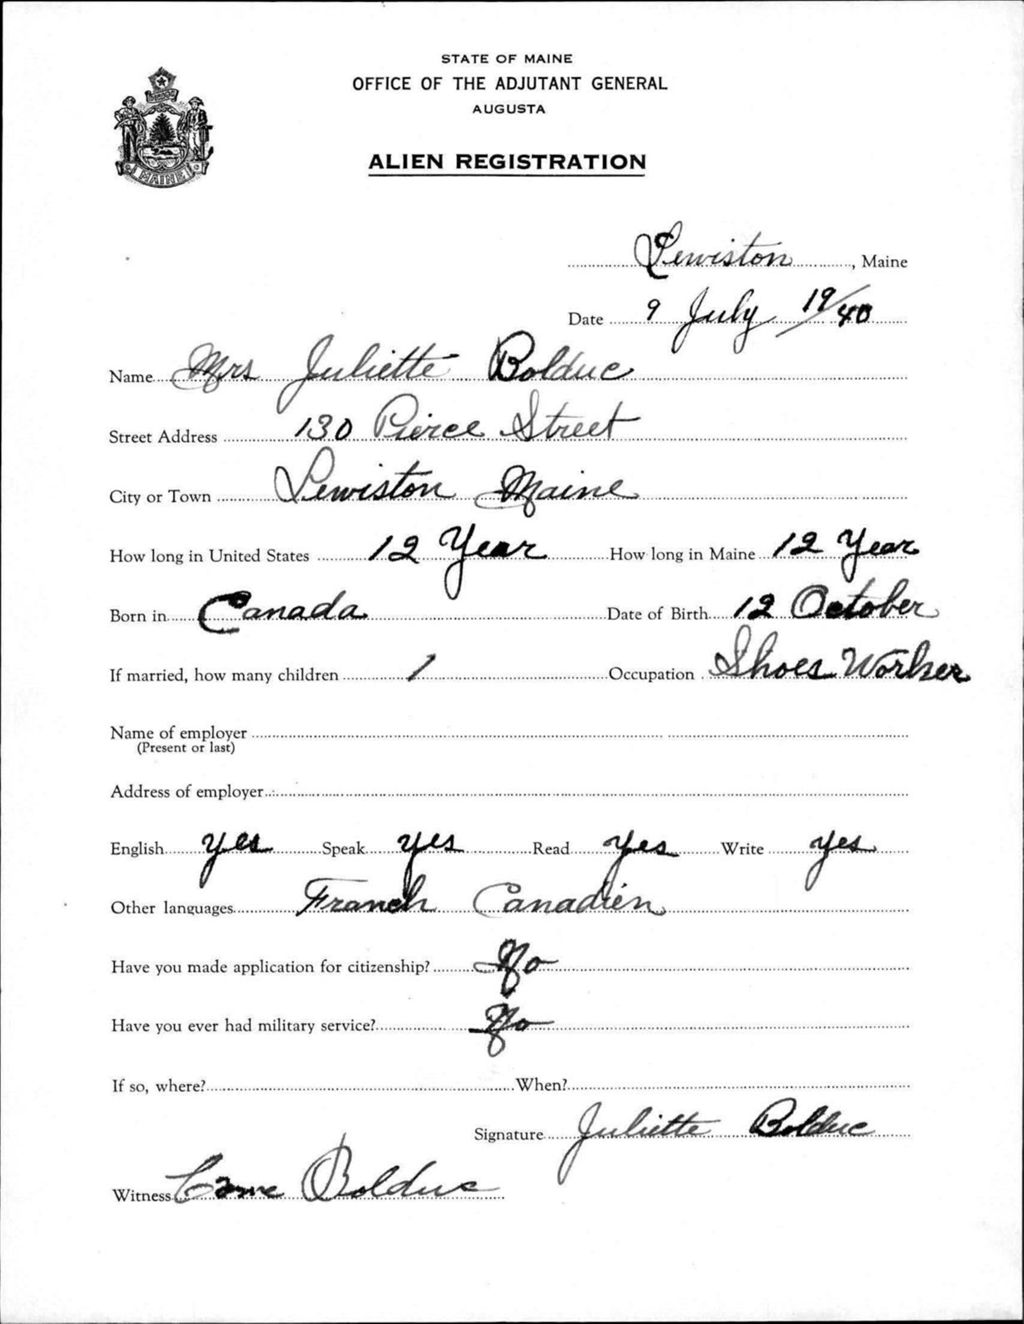 STATE OF MAINE
OFFICE OF THE ADJUTANT GENERAL
AUGUSTA
ALIEN REGISTRATION
MAINE
Lewiston, Maine
Date 9 July 1940
Name Mrs Juliette Bolduc
Street Address 130 Pierce Street
City or Town Lewiston Maine
How long in United States 12 Year How long in Maine 12 Year
Born in Canada Date of Birth 12 October
If married, how many children 1 Occupation Shoes Worker
Name of employer
(Present or last)
Address of employer
English yes Speak yes Read yes Write yes
Other languages Franch Canadien
Have you made application for citizenship? No
Have you ever had military service? No
If so, where? When?
Signature Juliette Bolduc
Witness Bolduc